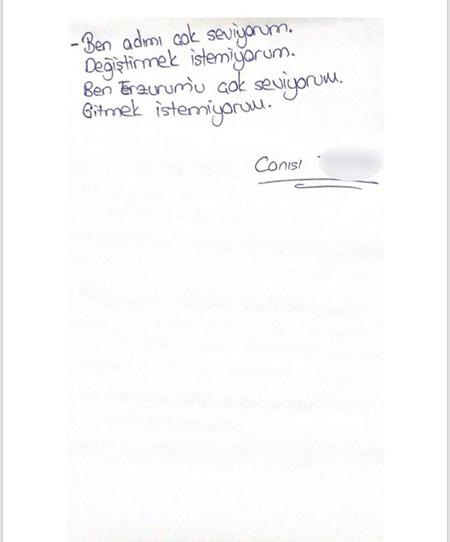 - Ben adımı çok seviyorum.
Değiştirmek istemiyorum.
Ben Erzurum'u çok seviyorum.
Gitmek istemiyorum.
Canısı